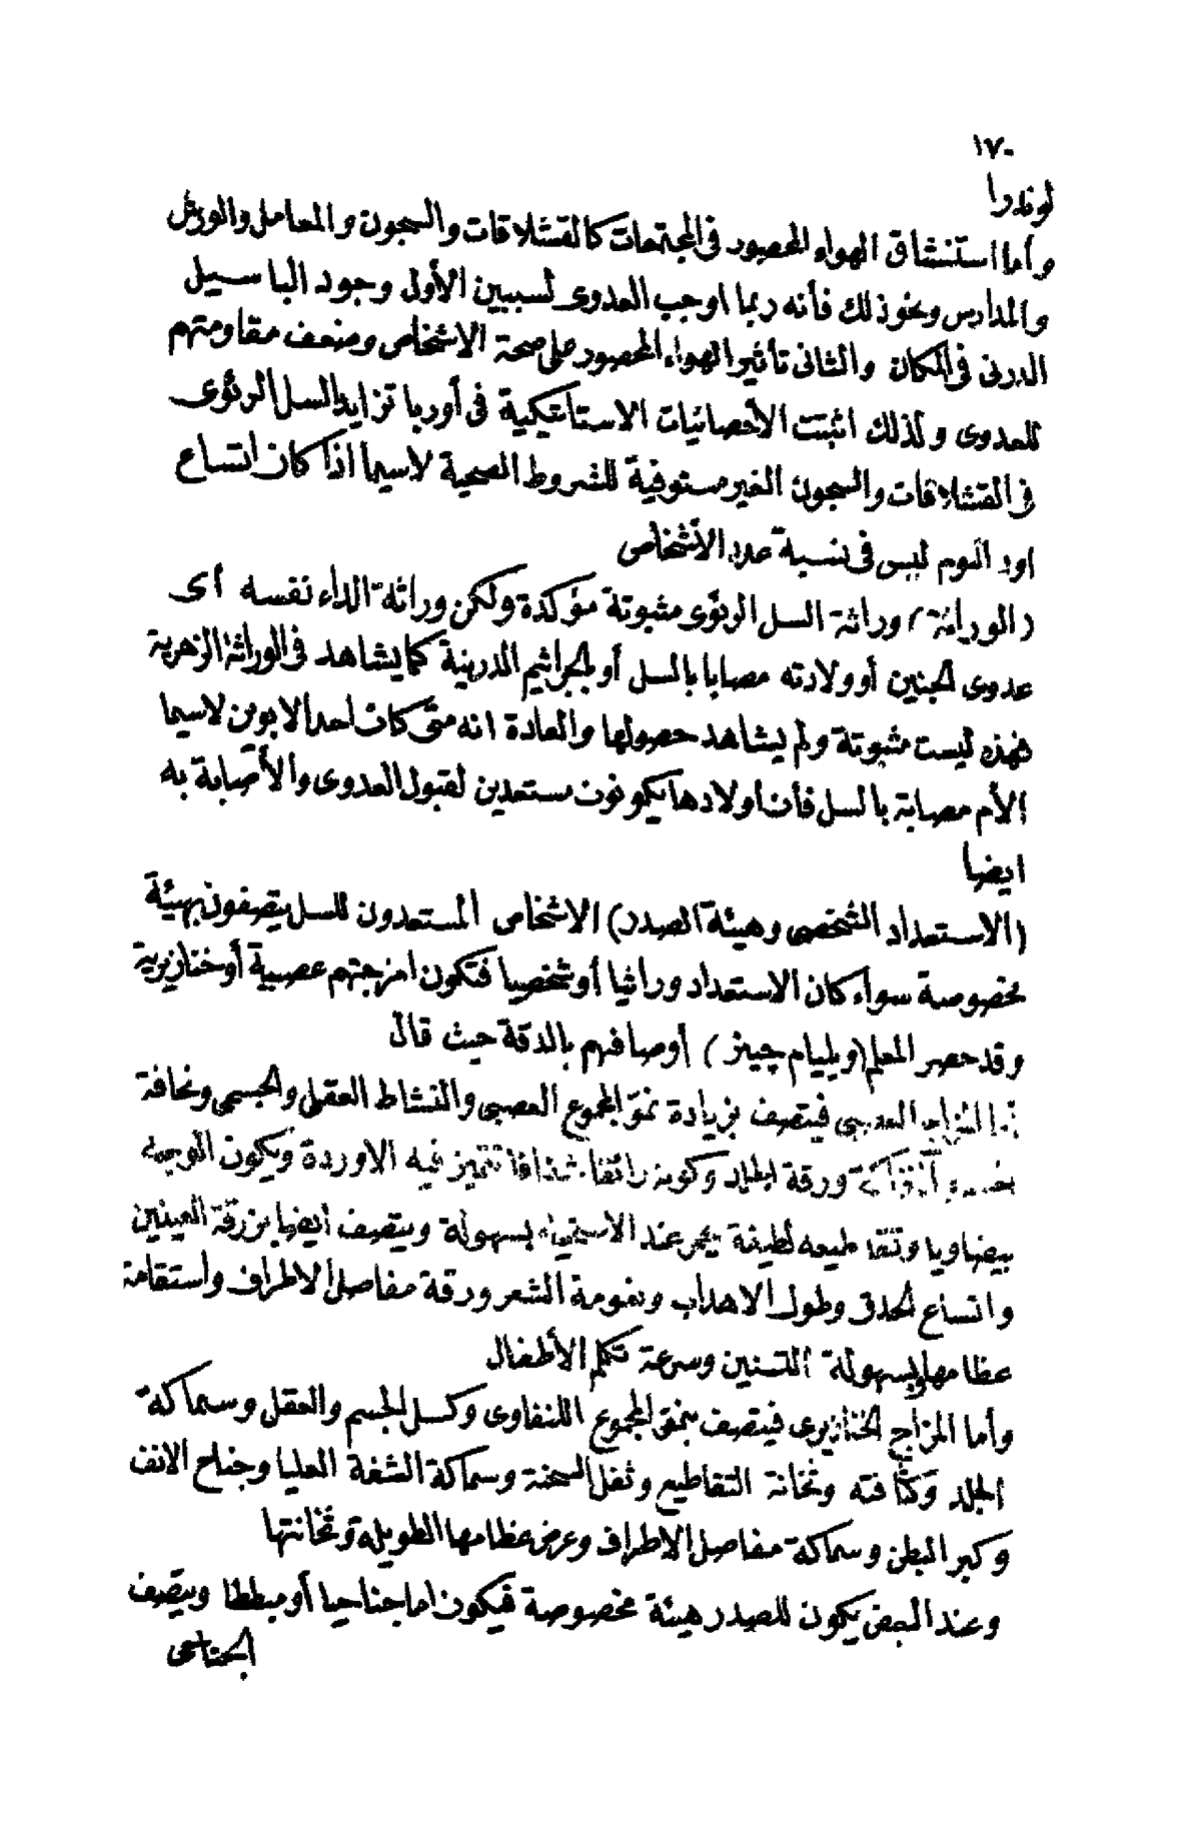 ١٧٠
لوندرا
وأما استنشاق الهواء المحصور فى المجتمعات كالقشلاقات والسجون والمعامل والورش
والمدارس ونحو ذلك فأنه ربما اوجب العدوى لسببين الأول وجود الباسيل
الدرنى فى المكان والثانى تأثير الهواء المحصور على صحة الاشخاص وضعف مقاومتهم
للعدوى ولذلك اثبتت الأحصائيات الاستاتيكية فى أوربا تزايد السل الرئوى
فى القشلاقات والسجون الغير مستوفية للشروط الصحية لاسيما اذا كان اتساع
اود النوم ليس فى نسبة عدد الأشخاص
(الوراثة) وراثة السل الرئوى مثبوتة مؤكدة ولكن وراثة الداء نفسه أى
عدوى الجنين أو ولادته مصابا بالسل أو بالجراثيم الدرينية كما يشاهد فى الوراثة الزهرية
فهذه ليست مثبوتة ولم يشاهد حصولها والعادة انه متى كان احد الابوين لاسيما
الأم مصابة بالسل فأن أولادها يكونون مستعدين لقبول العدوى والأصابة به
ايضا
(الاستعداد الشخصى وهيئة الصدر) الاشخاص المستعدون للسل يتصفون بهيئة
مخصوصة سواء كان الاستعداد وراثيا أو شخصيا فتكون امزجتهم عصبية أو خنازيرية
وقد حصر المعلم (ويليام چينز) أوصافهم بالدقة حيث قال
أما المزاج العصبى فيتصف بزيادة نمو المجموع العصبى والنشاط العقلى والجسمى ونحافة
ورقة الجلد وكونه رائقا شفافا تتميز فيه الاوردة ويكون الوجه
بيضاويا وتقاطيعه لطيفة يحمر عند الاستحياء بسهولة ويتصف ايضا بزرقة العينين
واتساع الحدق وطول الاهداب ونعومة الشعر ورقة مفاصل الاطراف واستقامة
عظامها وبسهولة التسنين وسرعة تكلم الأطفال
وأما المزاج الخنازيرى فيتصف بنمو المجموع اللنفاوى وكسل الجسم والعقل وسماكة
الجلد وكثافته وثخانة التقاطيع وثقل السحنة وسماكة الشفة العليا وجناح الانف
وكبر البطن وسماكة مفاصل الاطراف وعرض عظامها الطويلة وثخانتها
وعند البعض يكون للصدر هيئة مخصوصة فيكون اما جناحيا أو مبططا ويتصف
الجناحى